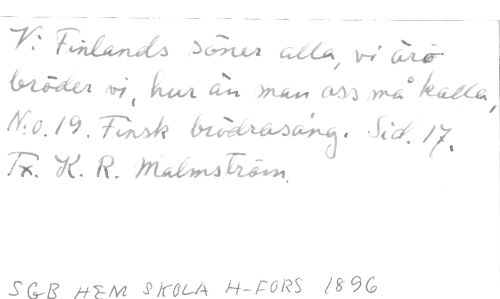 Vi Finlands söner alla, vi äro
bröder vi, hur än man oss må kalla,
N:o. 19. Finsk brödrasång. Sid. 17.
Tx. K. R. Malmström.
SGB HEM SKOLA H-FORS 1896